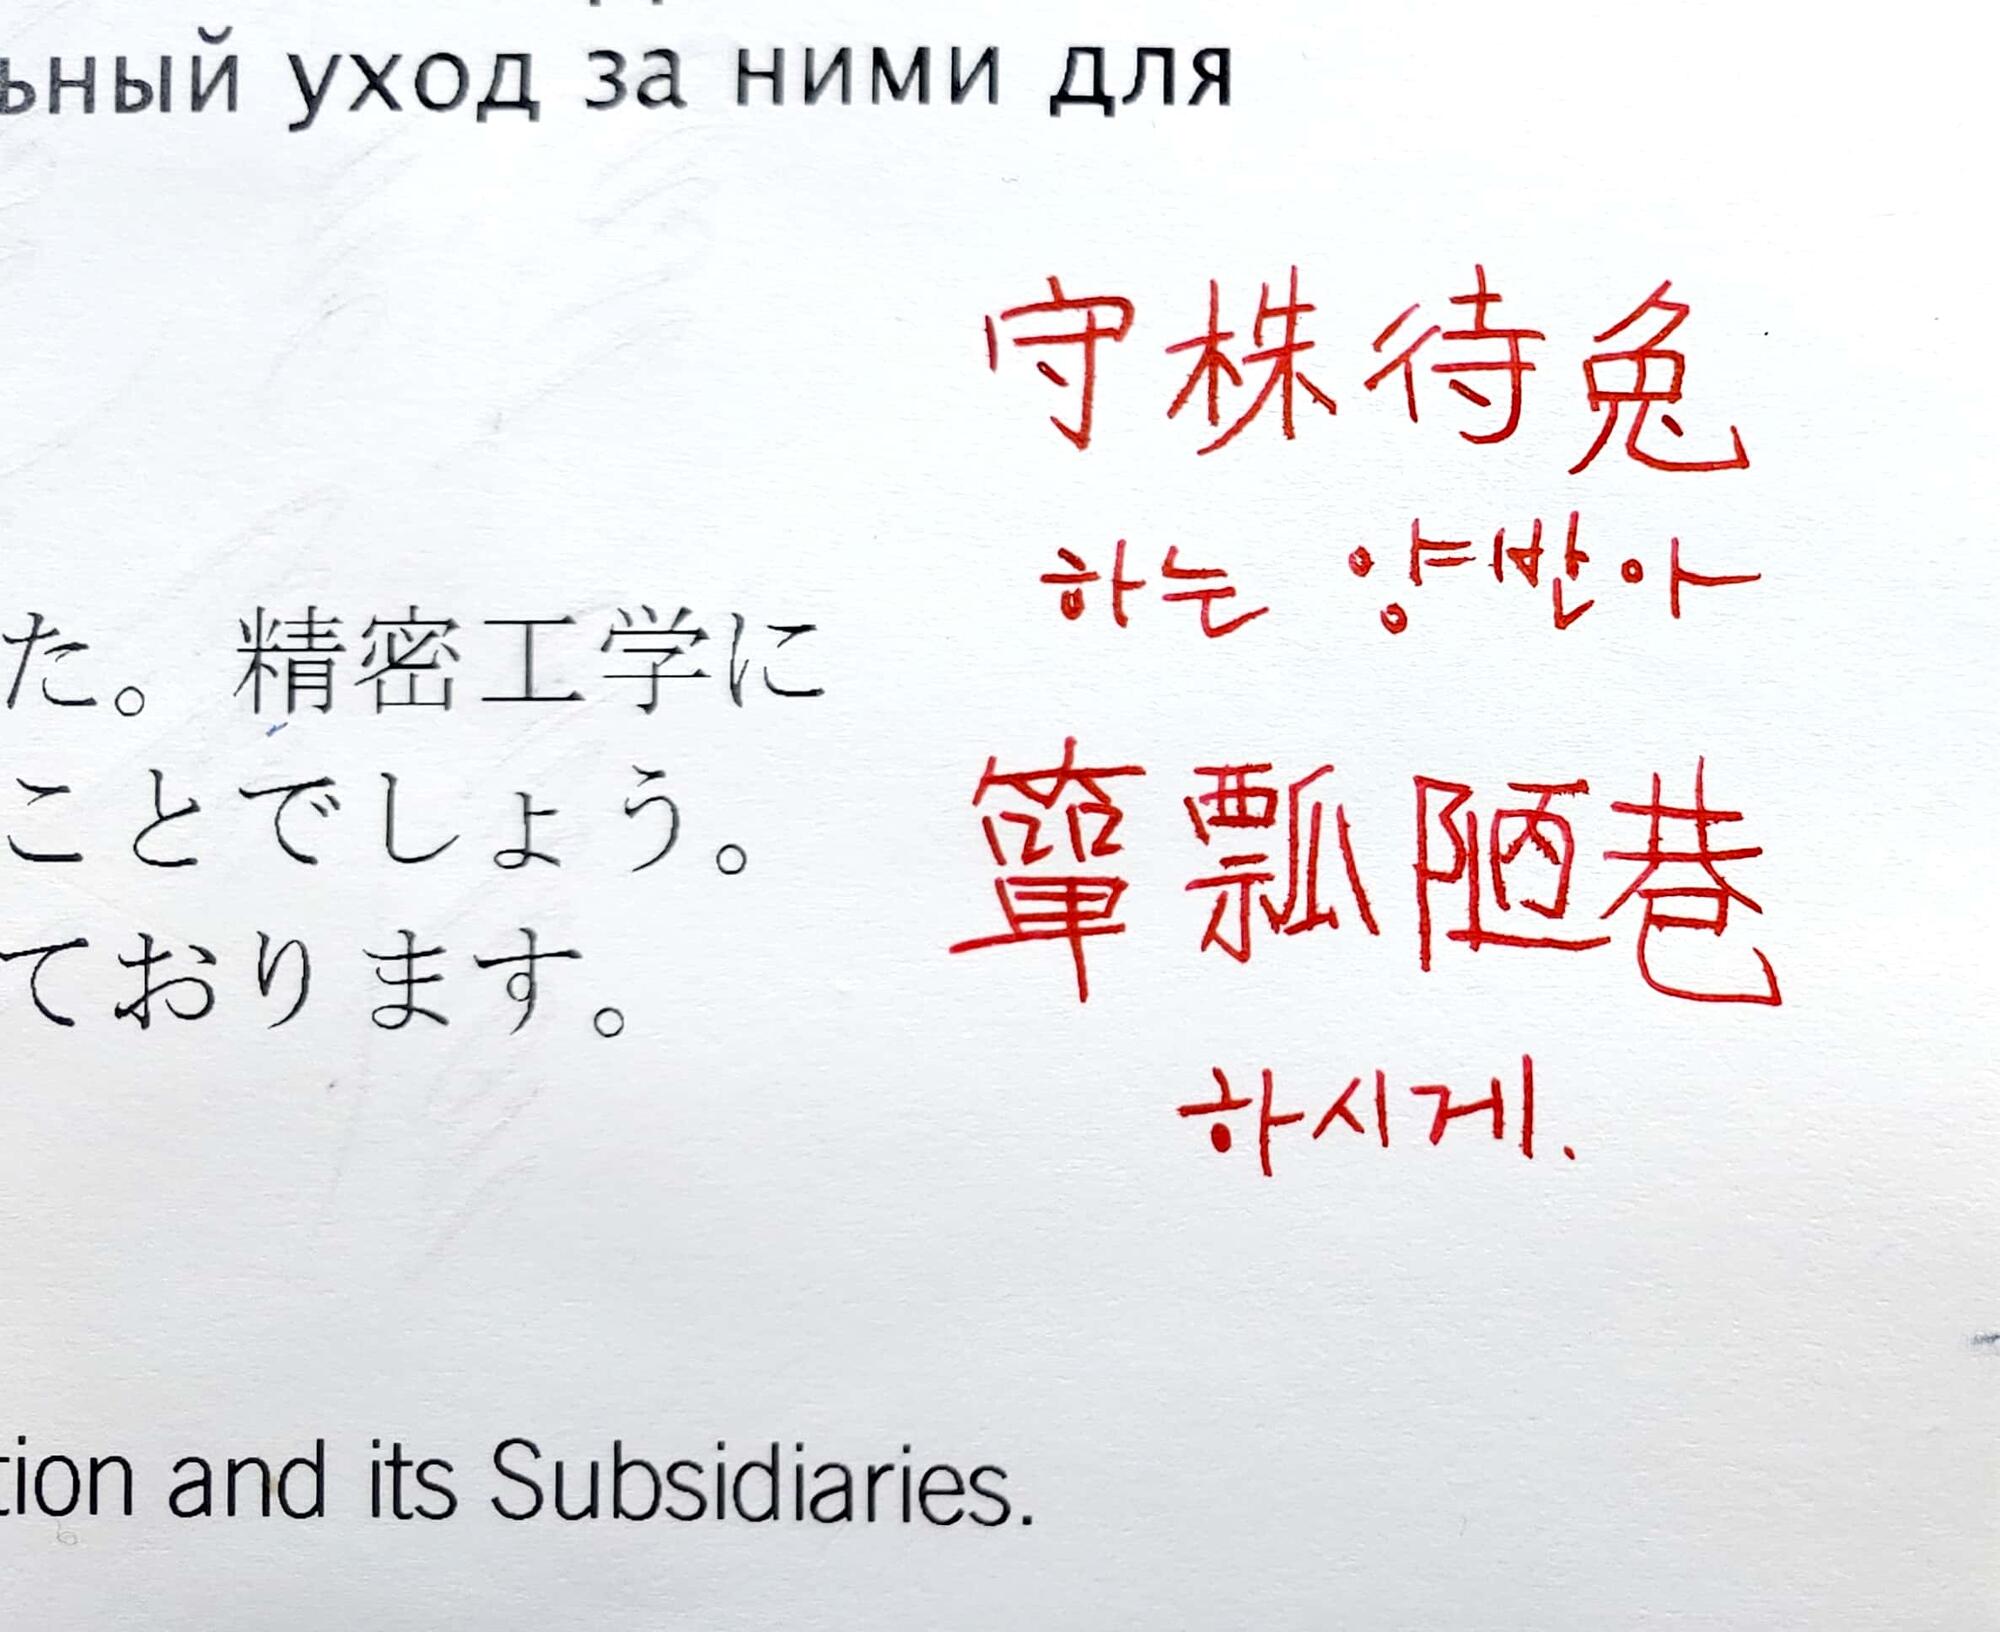 ьный уход за ними для
守株待兔
하는 양반아
た。精密工学に
簞瓢陋巷
ことでしょう。
ております。
하시게.
tion and its Subsidiaries.